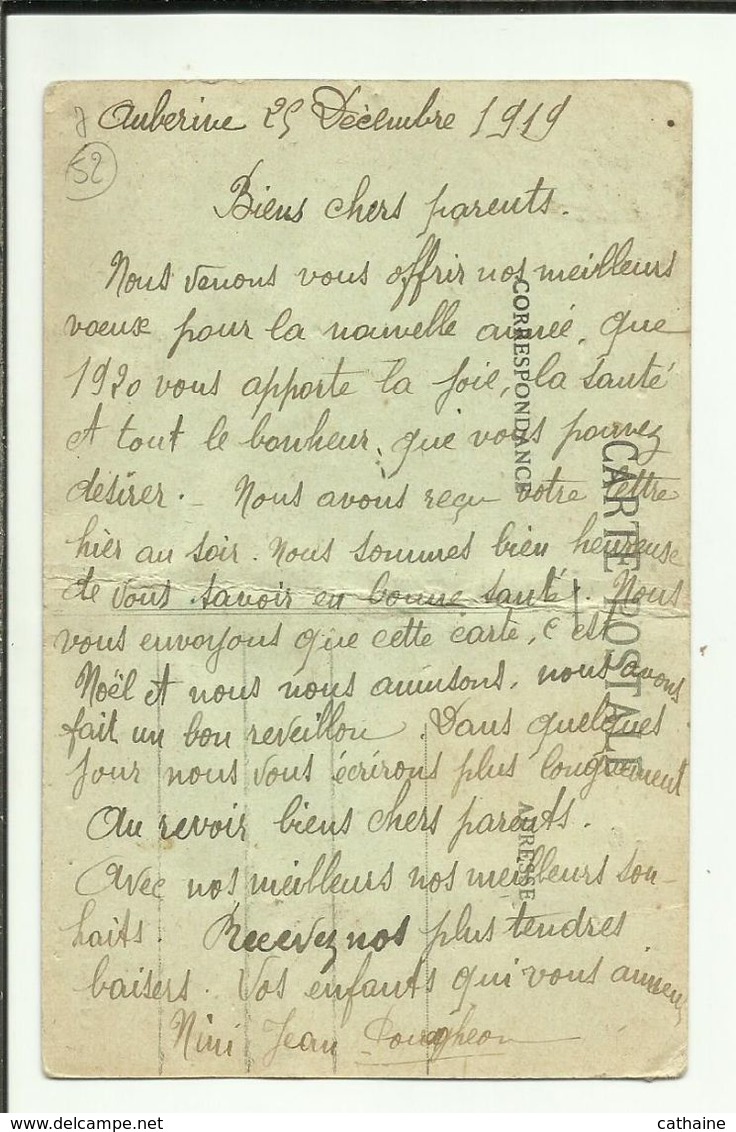 Auberive 25 Décembre 1919
52
Biens chers parents.
Nous venons vous offrir nos meilleurs
voeux pour la nouvelle année, que
1920 vous apporte la joie, la santé
et tout le bonheur, que vous pouvez
désirer. - Nous avons reçu votre lettre
hier au soir. Nous sommes bien heureuse
de vous savoir en bonne santé. Nous
vous envoyons que cette carte, c'est
Noël et nous nous amusons, nous avons
fait un bon reveillon. Dans quelques
jour nous vous écrirons plus longuement
Au revoir biens chers parents.
Avec nos meilleurs nos meilleurs sou-
haits. Recevez nos plus tendres
baisers. Vos enfants qui vous aiment
Nini Jean
CORRESPONDANCE
CARTE POSTALE
ADRESSE
cathaine
www.delcampe.net